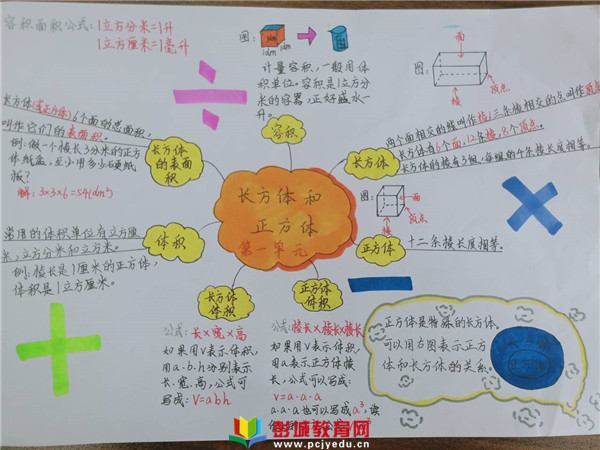 容积面积公式:1立方分米=1升
1立方厘米=1毫升
图:
1dm
1dm
计量容积,一般用体
积单位。容积是1立方分
米的容器,正好盛水一
升。
容积
图:
面
棱
顶点
长方体(或正方体)6个面的总面积,
叫作它们的表面积。
例:做一个棱长3分米的正方
体纸盒,至少用多少硬纸
板?
解:3×3×6=54(dm²)
长方体
的表面
积
两个面相交的线叫作棱,三条棱相交的点叫作顶点
长方体有6个面,12条棱,8个顶点。
长方体的棱有3组,每组的4条棱长度相等。
长方体
长方体和
正方体
第一单元
常用的体积单位有立方厘
米,立方分米和立方米。
例:棱长是1厘米的正方体,
体积是1立方厘米。
体积
图:
面
顶点
棱
正方体
十二条棱长度相等。
长方体
体积
公式:长×宽×高
如果用V表示体积,
用a.b.h分别表示
长.宽.高,公式可
写成:V=abh
正方体
体积
公式:棱长×棱长×棱长
如果用V表示体积,
用a表示正方体棱
长,公式可以写成:
V=a·a·a
a·a·a也可以写成a³,读
正方体是特殊的长方体。
可以用右图表示正方
体和长方体的关系。
彭城教育网
www.pcjyedu.cn